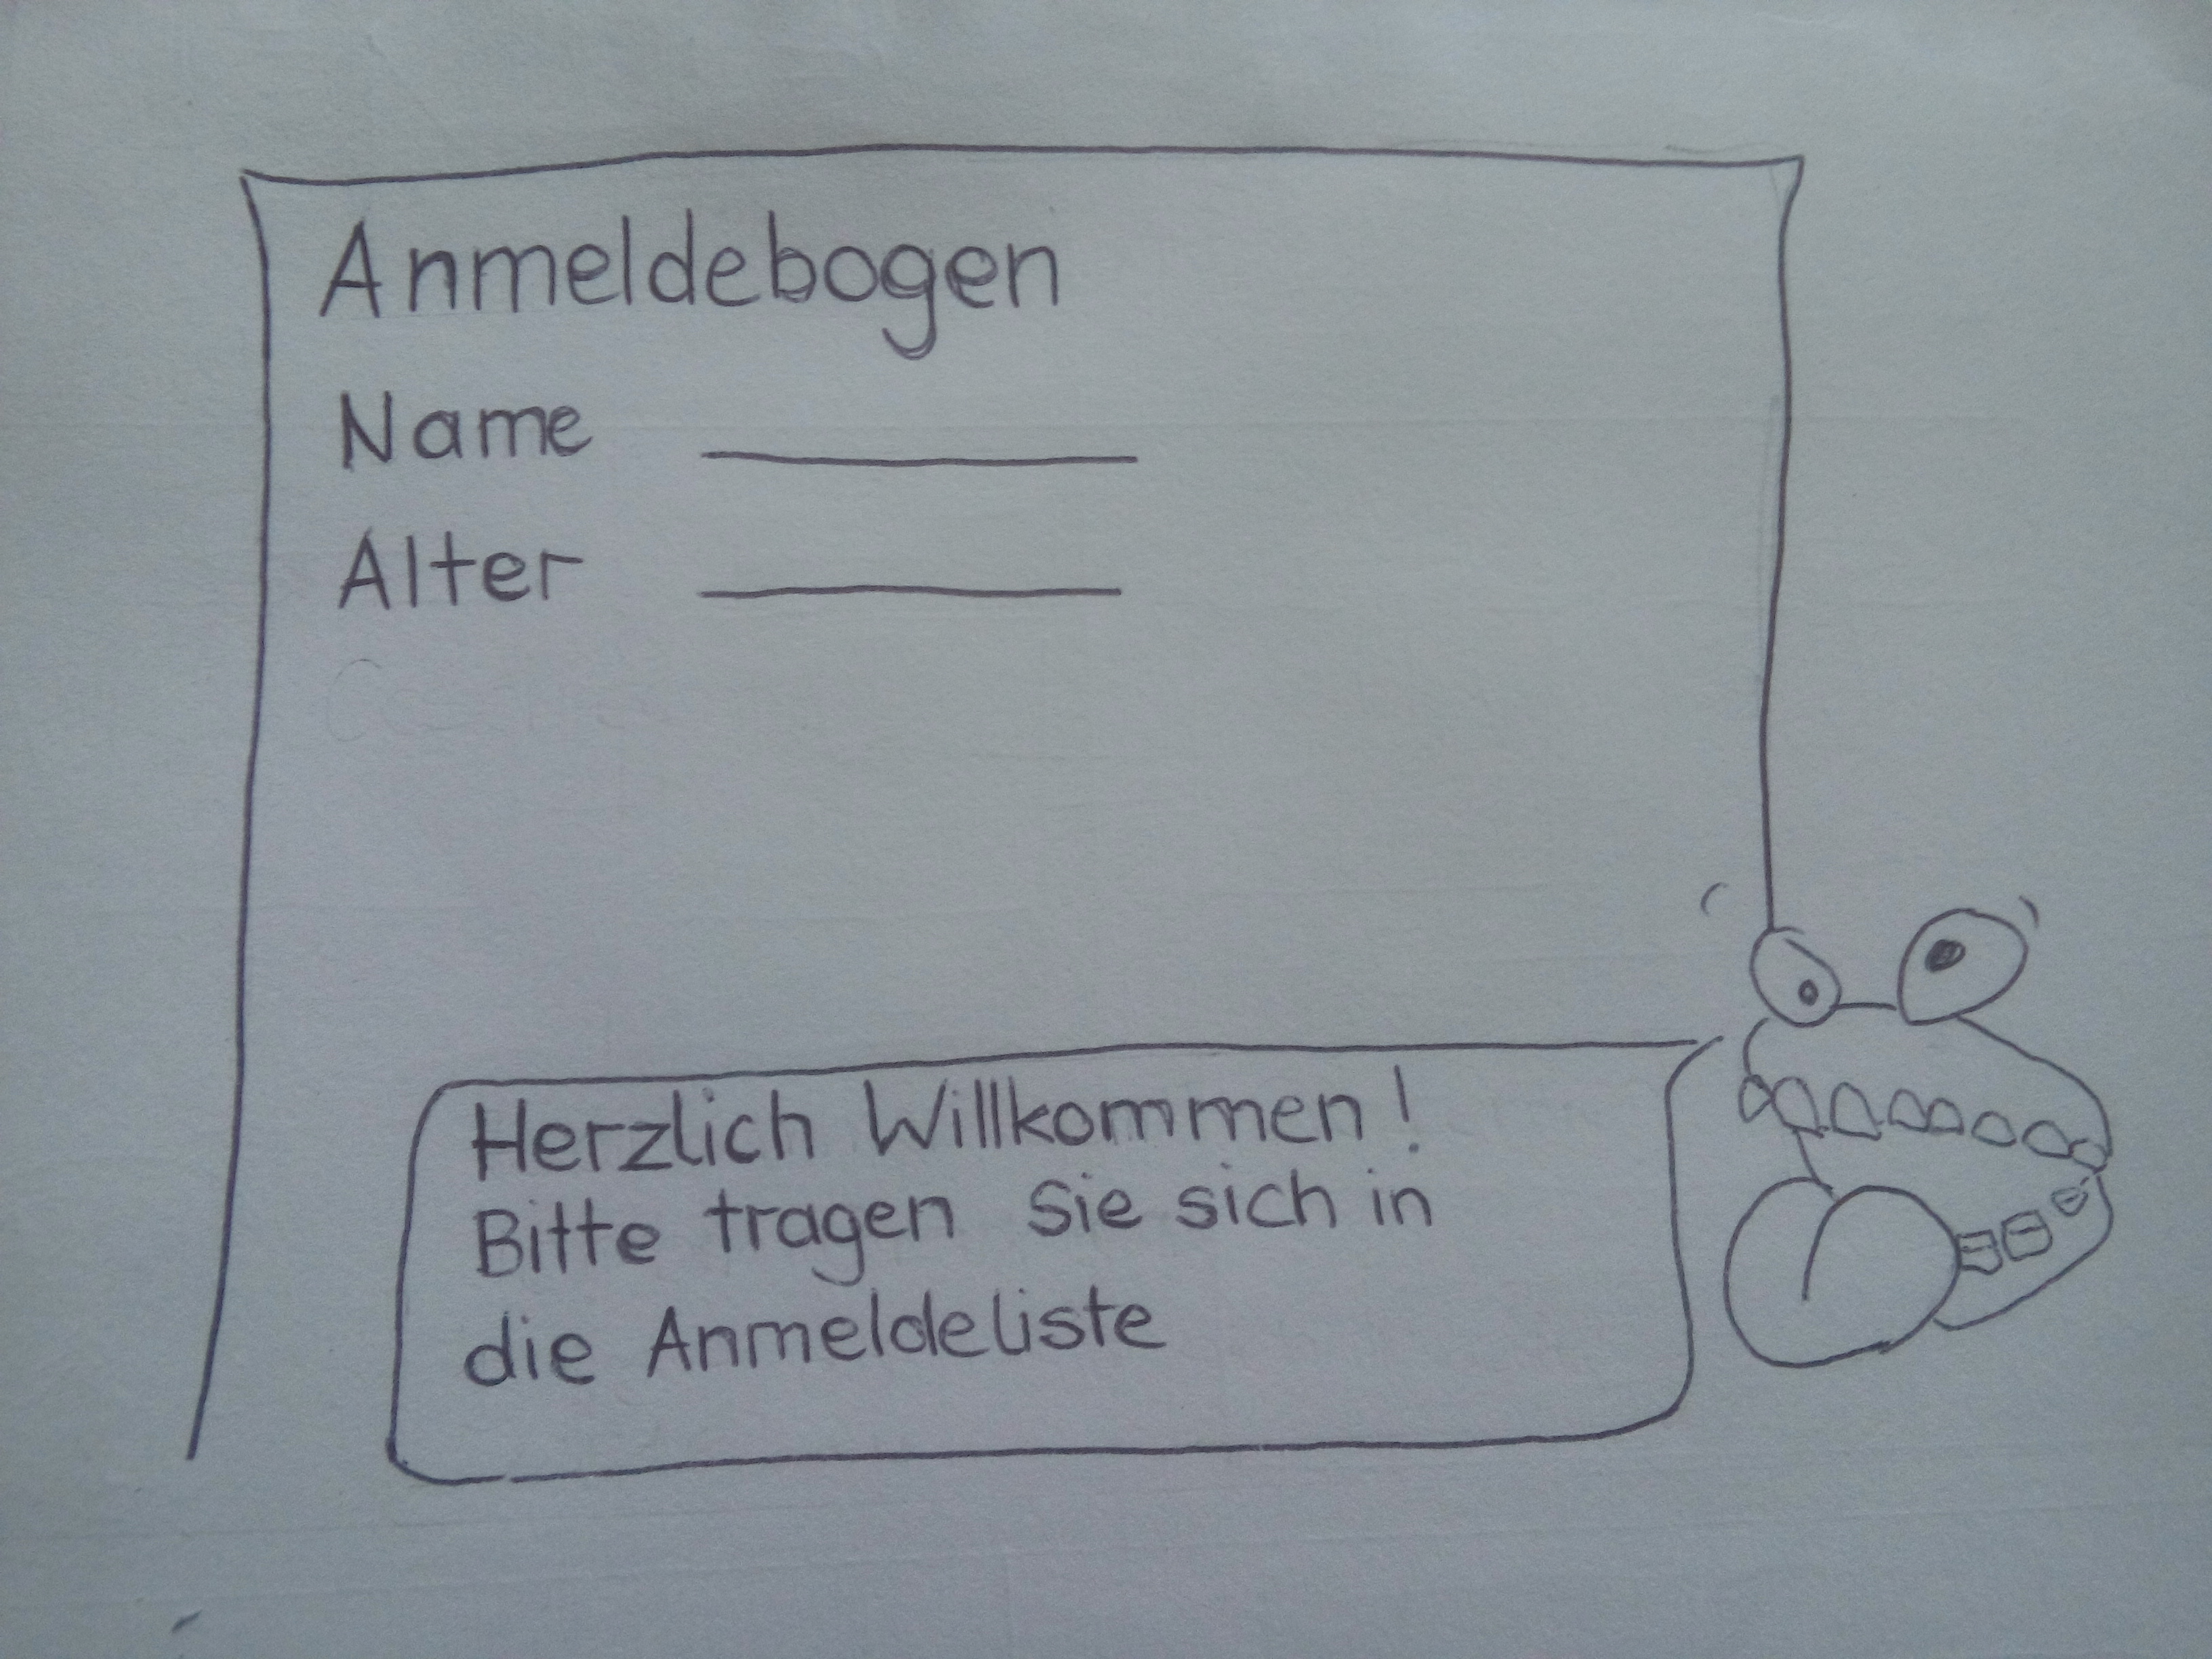 Anmeldebogen
Name
Alter
Herzlich Willkommen!
Bitte tragen Sie sich in
die Anmeldeliste